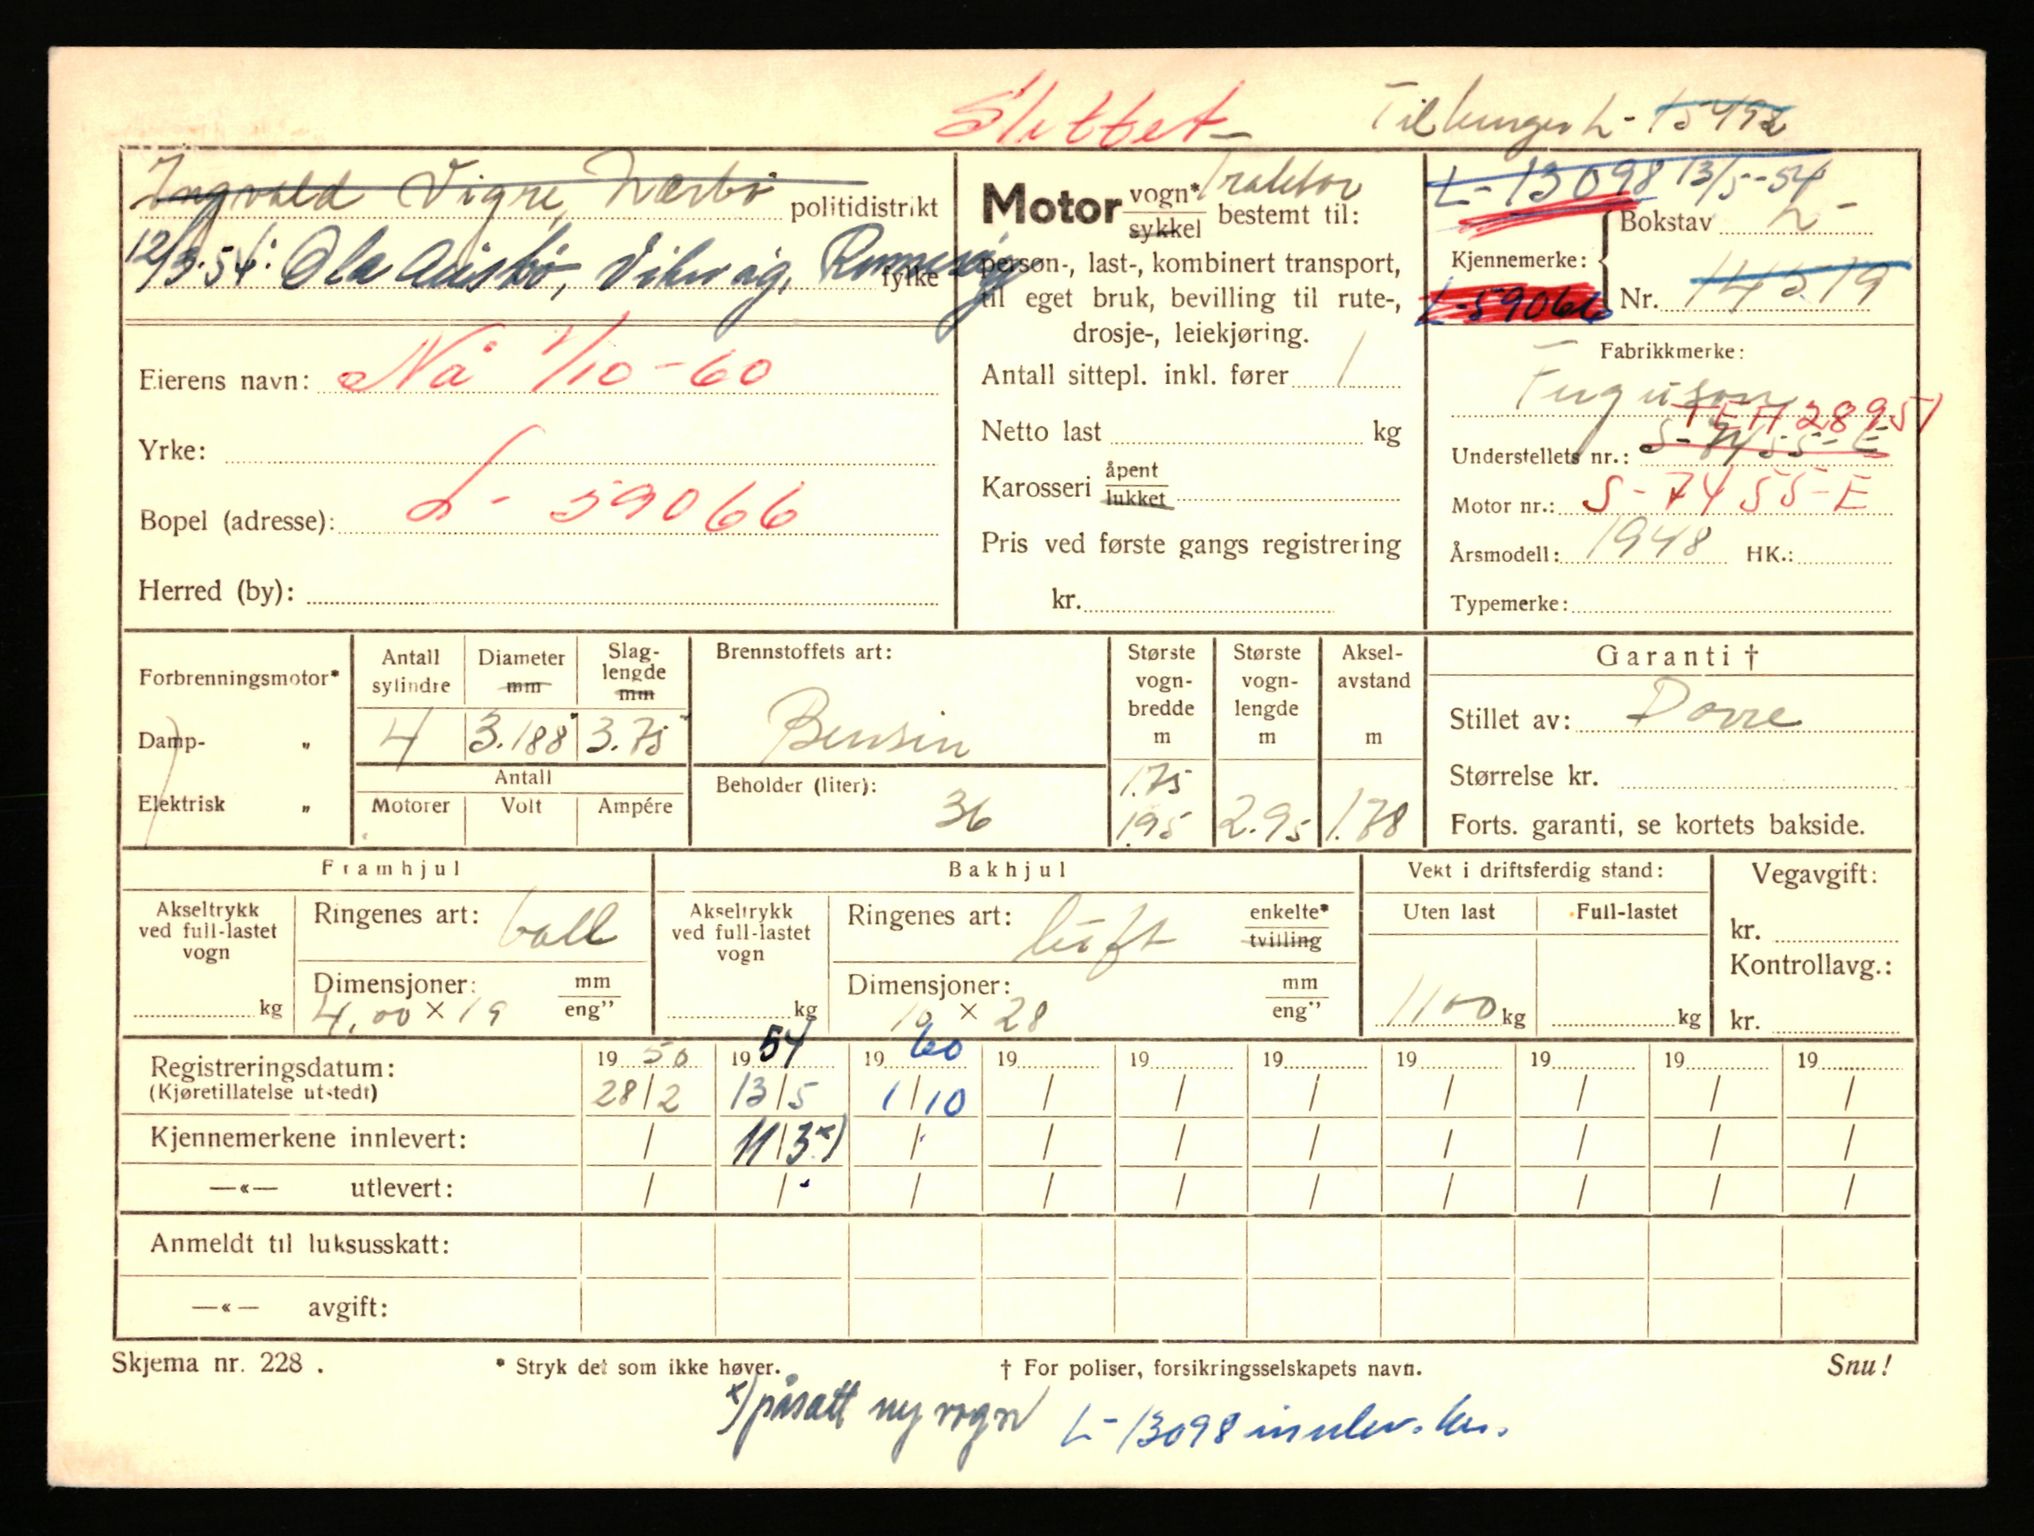 Slettet - Tilhenger L- 15492
Ingvald Vigre, Nærbø politidistrikt
12/3-54: Ola fylke
Eierens navn: Nå 1/10-60
Yrke:
Bopel (adresse): L- 59066
Herred (by):
Motor vogn* sykkel bestemt til: Traktor
person-, last-, kombinert transport,
til eget bruk, bevilling til rute-,
drosje-, leiekjøring.
Antall sittepl. inkl. fører 1
Netto last kg
Karosseri åpent lukket
Pris ved første gangs registrering
kr.
L-13098 13/5-54
Bokstav L-
Kjennemerke:
L-59066 Nr. 14519
Fabrikkmerke:
Ferguson
TEA 28951
Understellets nr.: S-7455-E
Motor nr.: S-7455-E
Årsmodell: 1948 HK.:
Typemerke:
Forbrenningsmotor*
Damp- "
Elektrisk "
Antall sylindre Diameter mm Slaglengde mm
4 3.188" 3.75"
Antall
Motorer Volt Ampére
Brennstoffets art:
Bensin
Beholder (liter):
36
Største vognbredde m Største vognlengde m Akselavstand m
1.75
1.95 2.95 1.78
Garanti †
Stillet av: Dovre
Størrelse kr.
Forts. garanti, se kortets bakside.
Framhjul
Akseltrykk ved full-lastet vogn kg
Ringenes art: ball
Dimensjoner: mm eng"
4,00 × 19
Bakhjul
Akseltrykk ved full-lastet vogn kg
Ringenes art: luft enkelte* tvilling
Dimensjoner: mm eng"
10 × 28
Vekt i driftsferdig stand:
Uten last Full-lastet
1100 kg kg
Vegavgift:
kr.
Kontrollavg.:
kr.
Registreringsdatum: 19 50 19 54 19 60 19 19 19 19 19 19 19
(Kjøretillatelse utstedt) 28/2 13/5 1/10 / / / / / / /
Kjennemerkene innlevert: / 11/3 x) / / / / / / / /
—«— utlevert: / / / / / / / / / /
Anmeldt til luksusskatt:
—«— avgift:
Skjema nr. 228 . * Stryk det som ikke høver. † For poliser, forsikringsselskapets navn. Snu!
x) påsatt ny vogn L-13098 innlev.